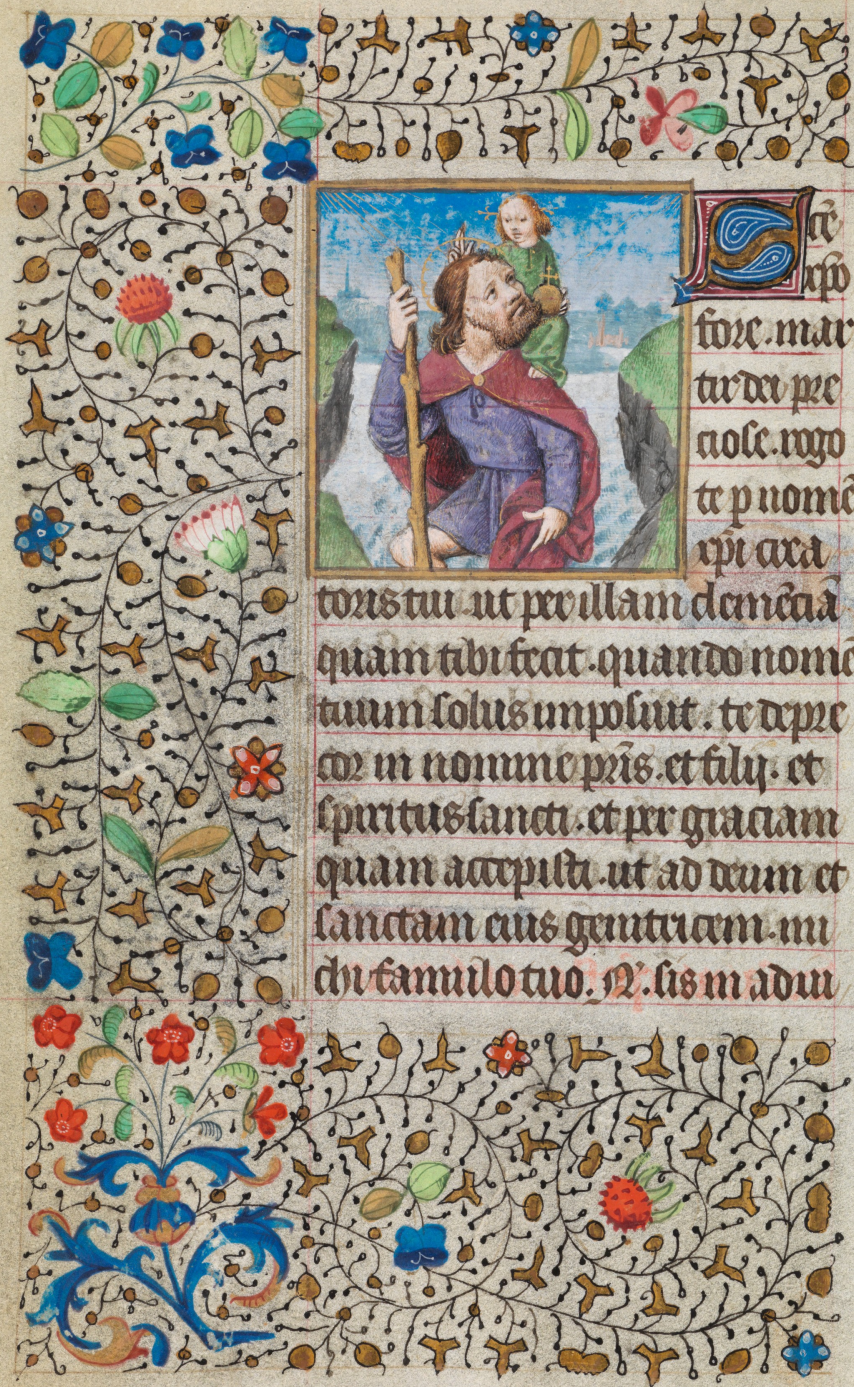 Sc̄e
xp̄o
fore. mar
tir dei pre
ciose. rogo
te p nomē
xp̄i crea
toris tui. ut per illam clemēciā
quam tibi fecit. quando nomē
tuum solus imposuit. te depre
cor in nomine pr̄is. et filij. et
spiritus sancti. et per graciam
quam accepisti. ut ad deum et
sanctam eius genitricem. mi
chi famulo tuo. N. sis in adiu